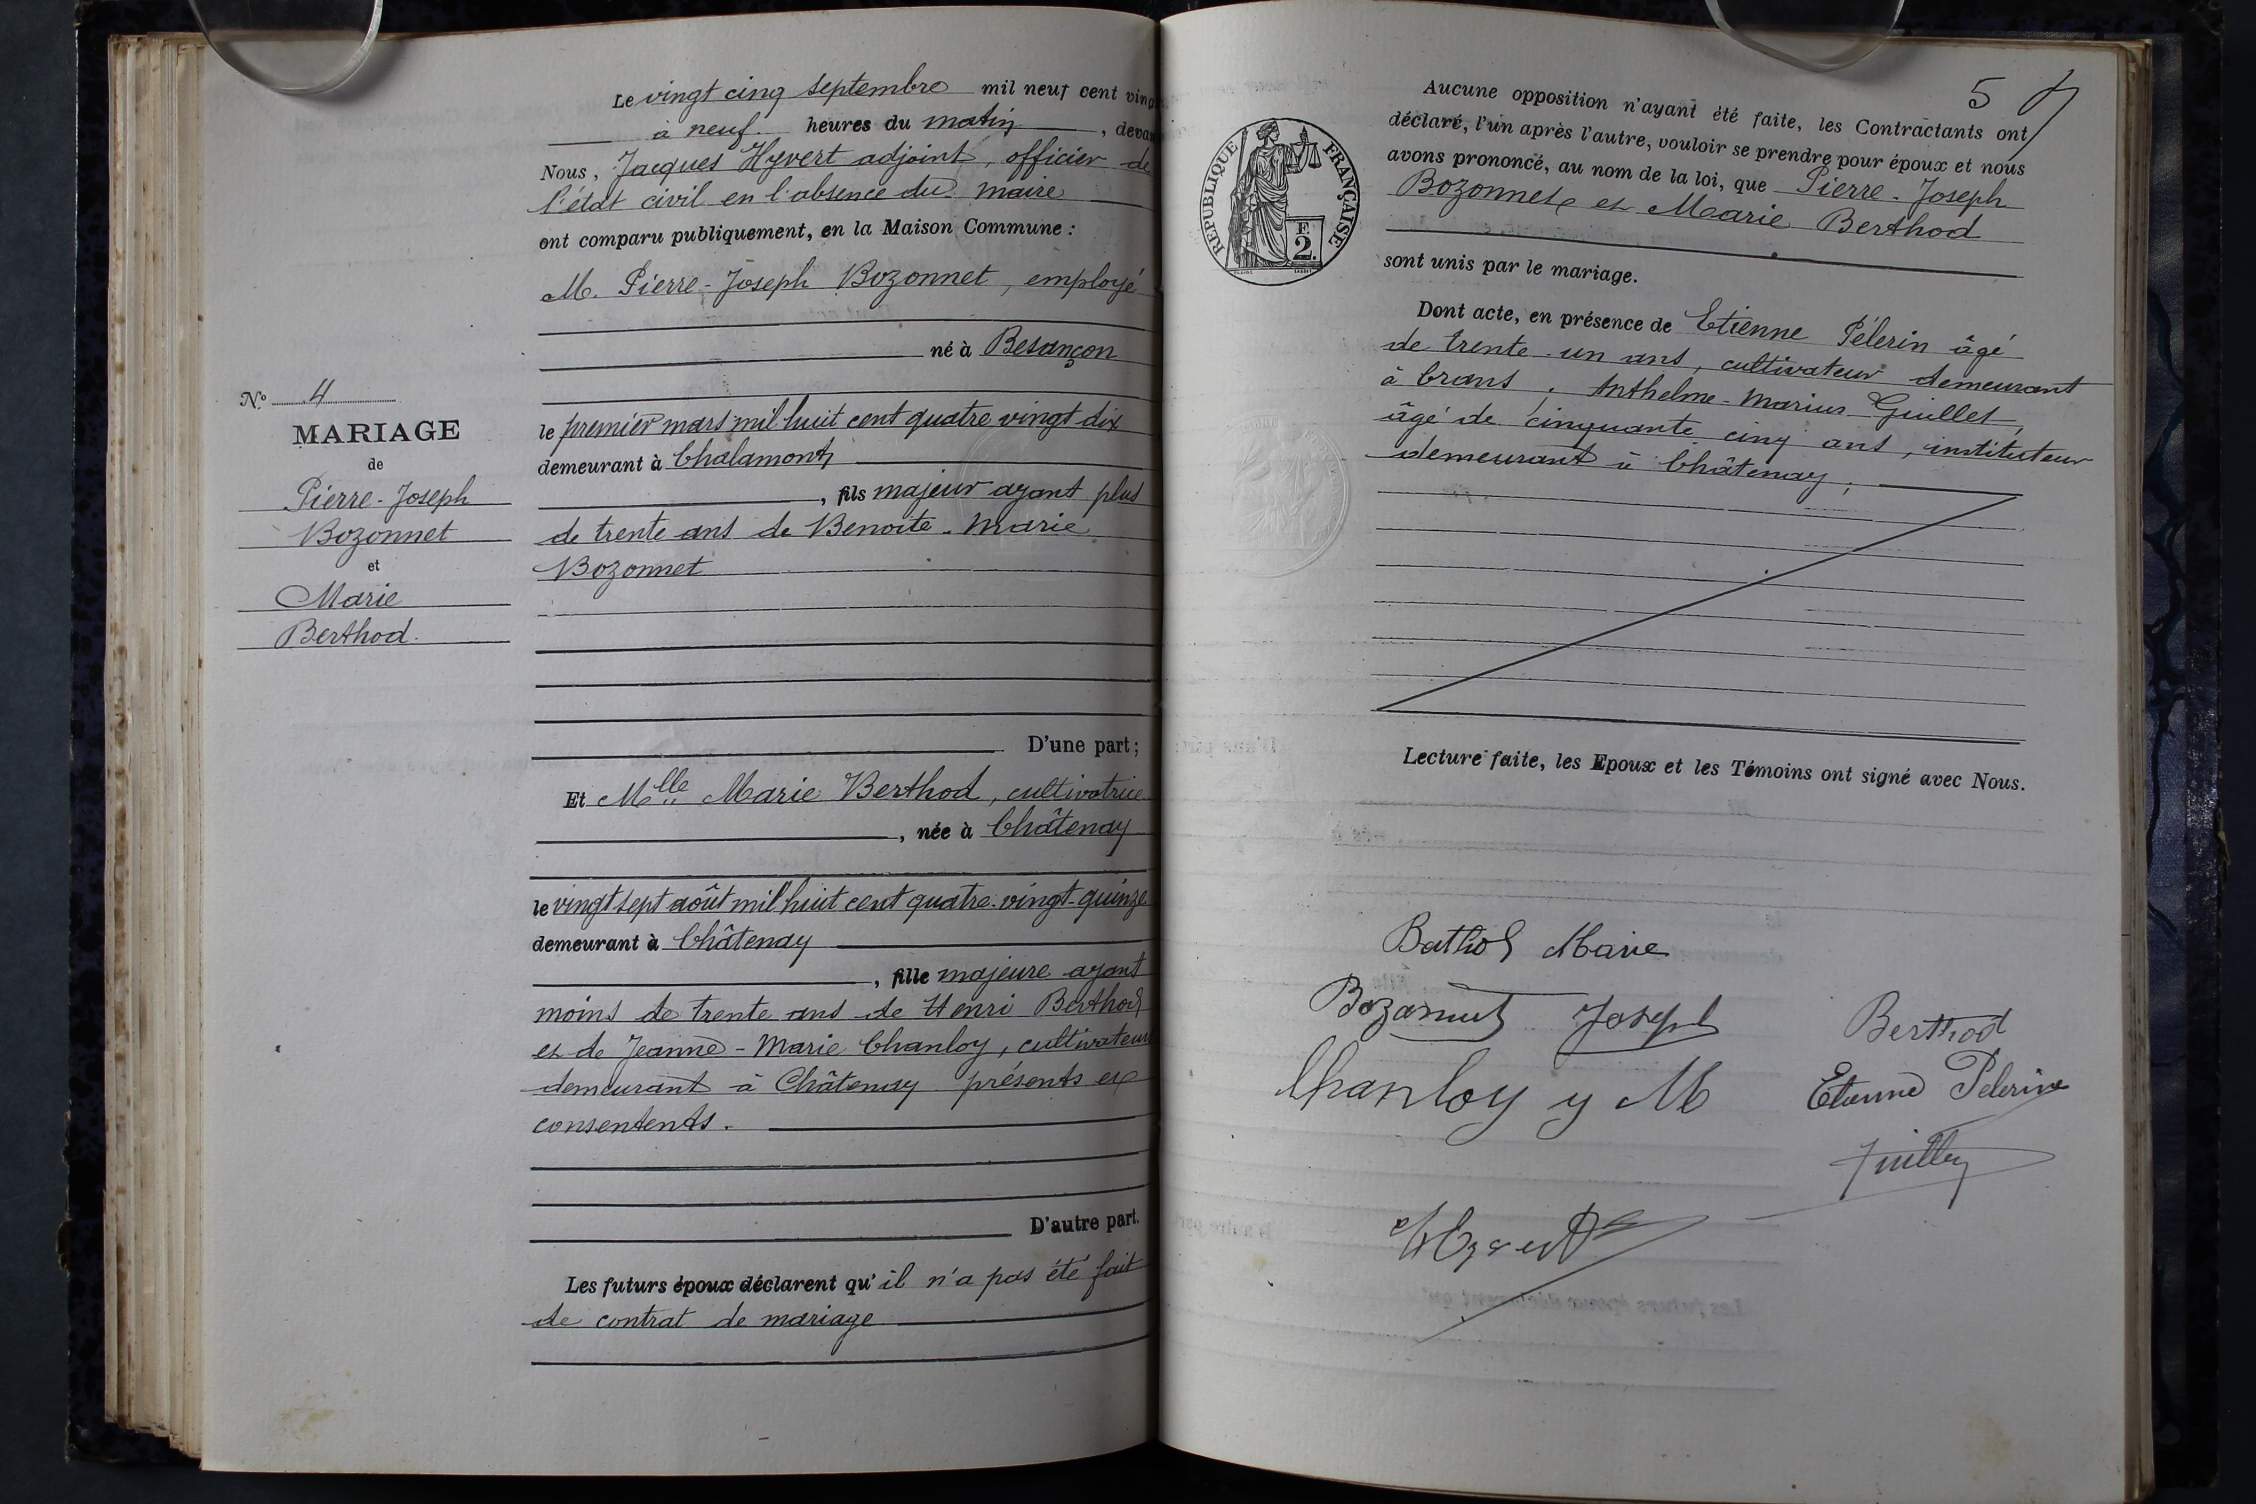 Le vingt cinq septembre mil neuf cent vingt
à neuf heures du matin, devant
Nous, Jacques Hyvert adjoint, officier de
l'état civil en l'absence du maire
ont comparu publiquement, en la Maison Commune :
M. Pierre-Joseph Bozonnet, employé
né à Besançon
le premier mars mil huit cent quatre vingt dix
demeurant à Chalamont
, fils majeur ayant plus
de trente ans de Benoite-Marie
Bozonnet
D'une part ;
Et Mlle Marie Berthod, cultivatrice
, née à Châtenay
le vingt sept août mil huit cent quatre-vingt-quinze
demeurant à Châtenay
, fille majeure ayant
moins de trente ans de Henri Berthod
et de Jeanne-Marie Chanloy, cultivateurs
demeurant à Châtenay présents et
consentents.
D'autre part.
Les futurs époux déclarent qu'il n'a pas été fait
de contrat de mariage
No 4
MARIAGE
de
Pierre-Joseph
Bozonnet
et
Marie
Berthod.
5
RÉPUBLIQUE FRANÇAISE
F.
2.
Aucune opposition n'ayant été faite, les Contractants ont
déclaré, l'un après l'autre, vouloir se prendre pour époux et nous
avons prononcé, au nom de la loi, que Pierre-Joseph
Bozonnet et Marie Berthod
sont unis par le mariage.
Dont acte, en présence de Etienne Pélerin âgé
de trente-un ans, cultivateur demeurant
à Crans, Anthelme-Marius Guillet,
âgé de cinquante cinq ans, instituteur
demeurant à Châtenay ;
Lecture faite, les Epoux et les Témoins ont signé avec Nous.
Berthod Marie
Bozonnet Joseph
Berthod
Chanloy y M
Etienne Pelerin
Guillet
Hyvert